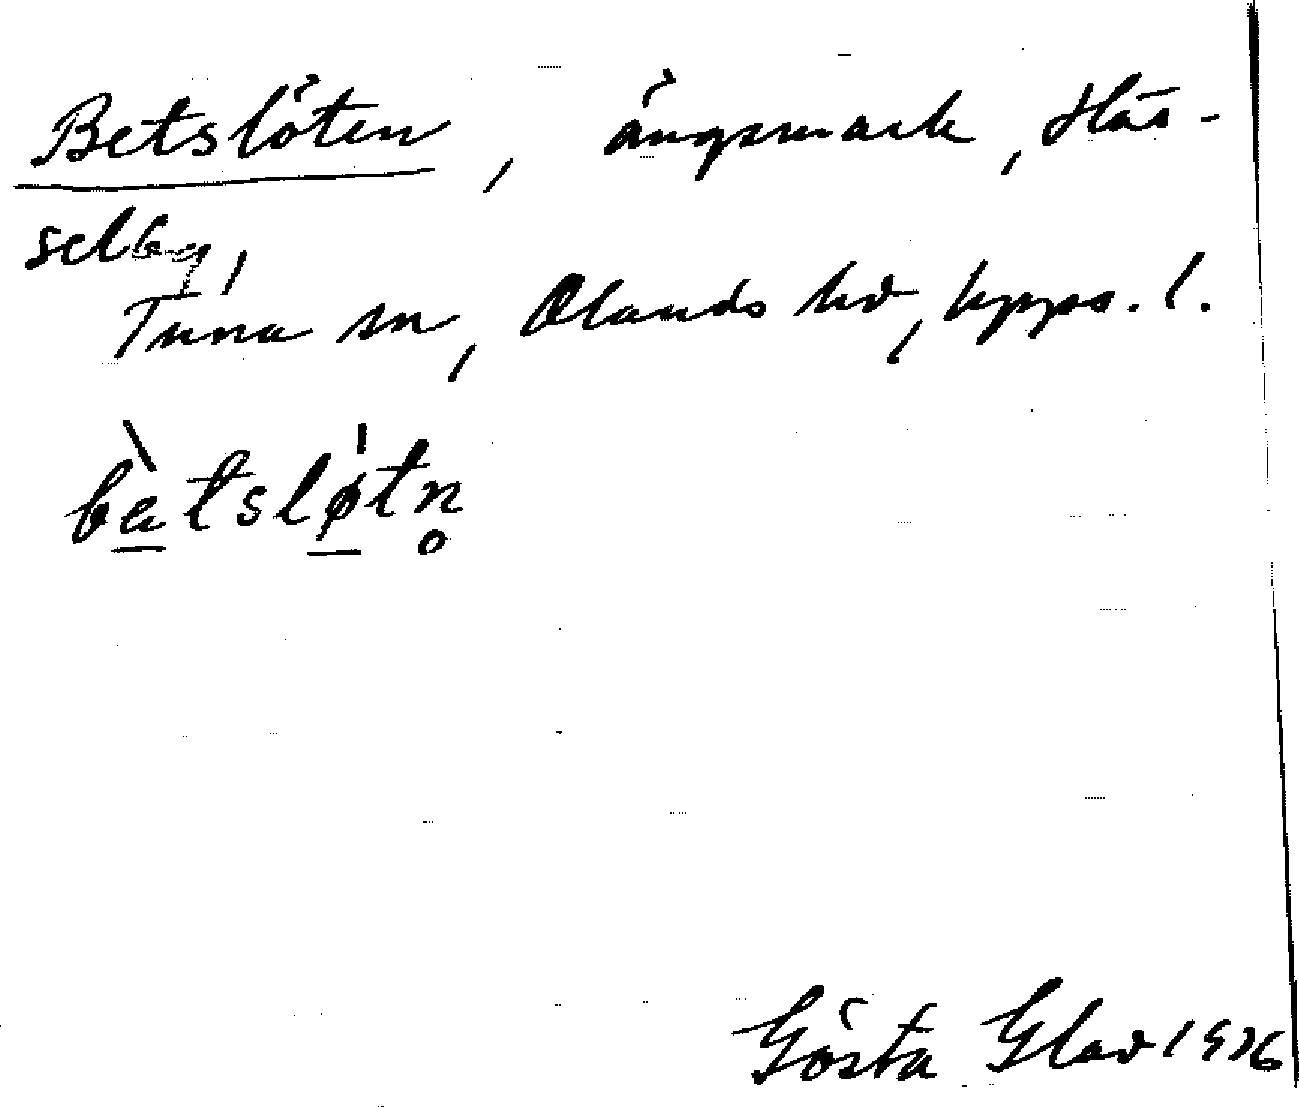 Betslöten, ängsmark, Häs-
selby,
Tuna sn, Olands hd, Upps. l.
bètsløtn̥
Gösta Glad 1926